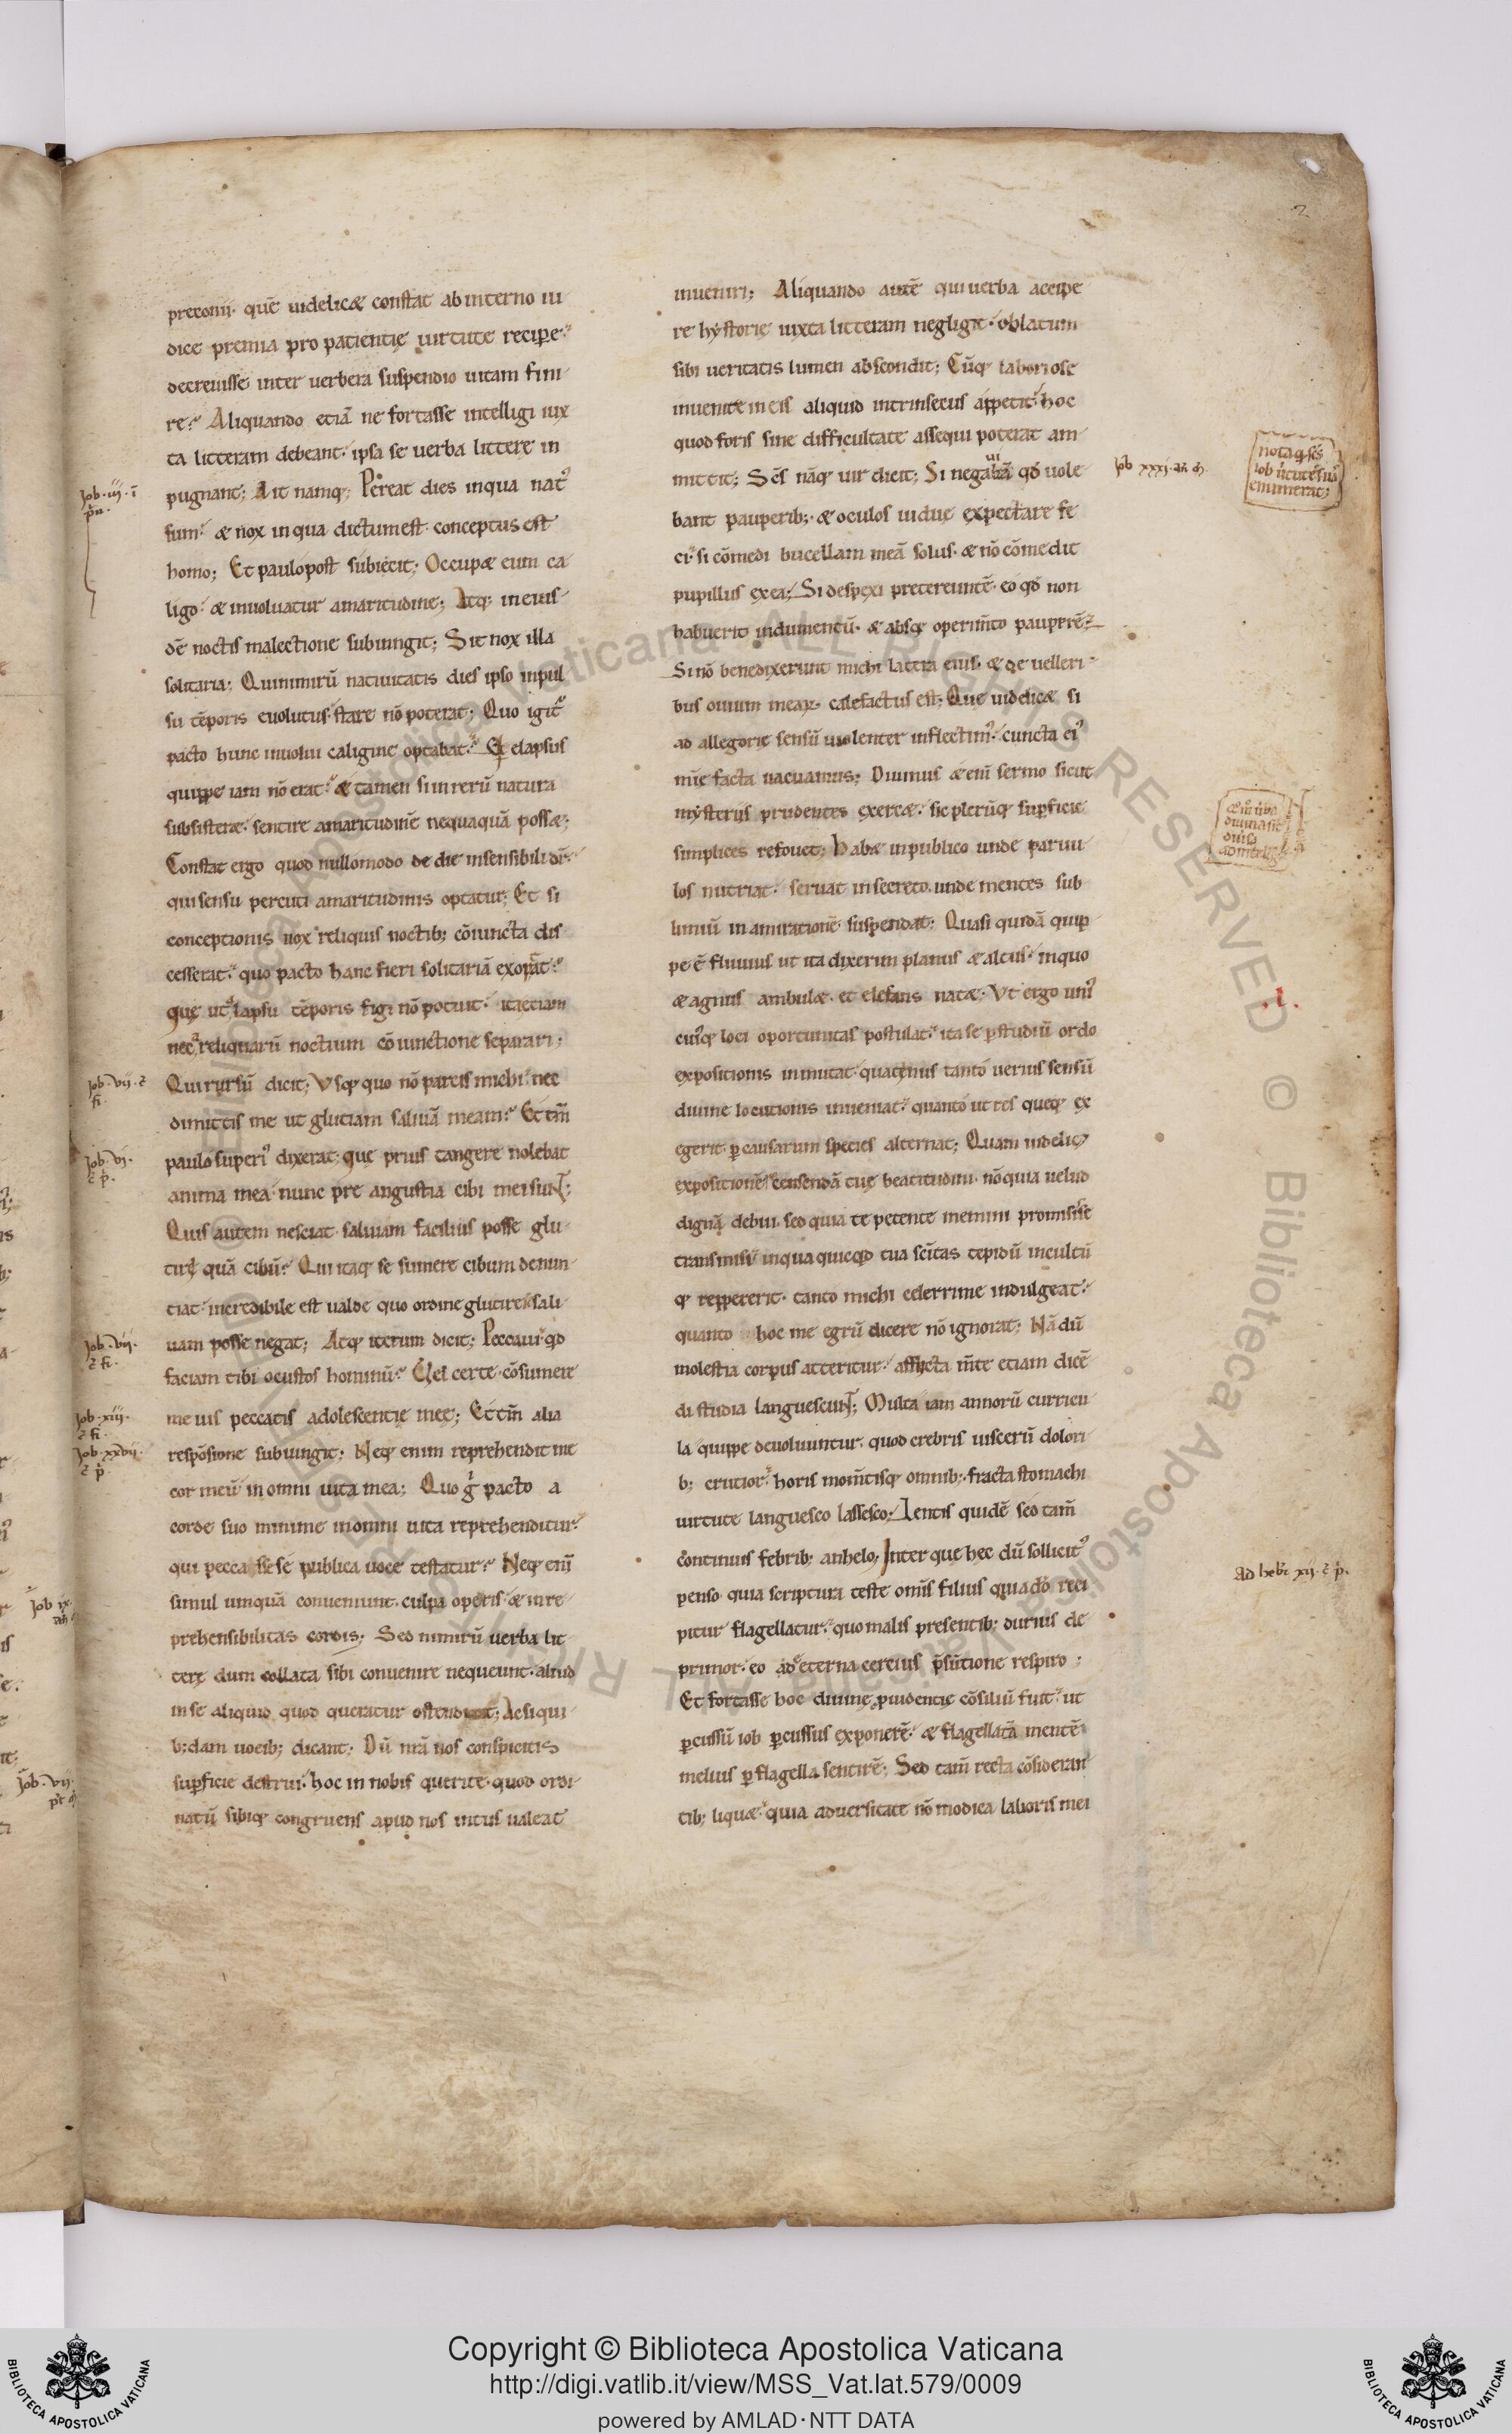 2
preconii· quē uidelicæ constat ab interno iu
dice premia pro patientię uirtute recipe·
decreuisse inter uerbera suspendio uitam fini
re? Aliquando etiā ne fortasse intelligi iux
ta litteram debeant· ipsa se uerba littere in
pugnant; Ait namq; Pereat dies in qua nat᾽
sum· æ nox in qua dictum est conceptus est
homo; Et paulo post subiecit; Occupæ eum ca
ligo· æ inuoluatur amaritudine; Atq; in eius
dē noctis malectione subiungit; Sit nox illa
solitaria; Qui nimirū natiuitatis dies ipso inpul
su tēporis euolutus· stare nō poterat; Quo igit᾽
pacto hunc inuolui caligine optabat? Et elapsus
quippe iam nō erat· æ tamen si in rerū natura
subsisteræ· sentire amaritudinē nequaquā possæ;
Constat ergo quod nullomodo de die insensibili dr̄·
qui sensu percuti amaritudinis optatur; Et si
conceptionis nox reliquis noctib; cōiuncta dis
cesserat· quo pacto hanc fieri solitariā exoptat?
que ut a lapsu tēporis figi nō potuit· ita etiam
nec a reliquarū noctium cōiunctione separari;
Qui rursū dicit; Vsq; quo nō parcis michi· nec
dimittis me ut glutiam saliuā meam? Et tm̄
paulo superi᾽ dixerat; que prius tangere nolebat
anima mea· nunc pre angustia cibi mei sunt;
Quis autem nesciat saliuam facilius posse glu
tire quā cibū? Qui itaq; se sumere cibum denun
tiat· incredibile est ualde quo ordine glutire sali
uam posse negat; Atq; iterum dicit; Peccaui· qd
faciam tibi o custos hominū? Vel certe· cōsumere
me uis peccatis adolescentię mee; Et tm̄ alia
respōsione subiungit; Neq; enim reprehendit me
cor meū in omni uita mea; Quo g̊ pacto a
corde suo minime in omni uita reprehenditur·
qui peccasse se publica uoce testatur? Neq; enī
simul umquā conueniunt· culpa operis· æ inre
prehensibilitas cordis; Sed nimirū uerba lit
terę dum collata sibi conuenire nequeunt· aliud
in se aliquid quod queratur ostendunt; Ac si qui
b;dam uocib; dicant; Dū nr̄a nos conspicitis
supficie destrui· hoc in nobis querite· quod ordi
natū sibiq; congruens apud nos intus ualeat
inueniri; Aliquando autē qui uerba accipe
re hystorię iuxta litteram negligit· oblatum
sibi ueritatis lumen abscondit; Cūq; laboriose
inuenire in eis aliquid intrinsecus appetit· hoc
quod foris sine difficultate assequi poterat am
mittit; Scs̄ nāq; uir dicit; Si negaui qd uole
bant pauperib;· æ oculos uiduę expectare fe
ci· si cōmedi bucellam meā solus· æ nō cōmedit
pupillus ex ea; Si despexi pretereuntē· eo qd non
habuerit indumentū· æ absq; operim̄to pauperē·
Si nō benedixerunt michi latera eius· æ de uelleri
bus ouium mear̄· calefactus est; Que uidelicæ si
ad allegorię sensū uiolenter inflectim᾽· cuncta ei᾽
mīe facta uacuamus; Diuinus æ enī sermo sicut
mysteriis prudentes exercæ· sic plerūq; supficie
simplices refouet; Habæ in publico unde paruu
los nutriat· seruat in secreto unde mentes sub
limiū in amirationē suspendat; Quasi quidā quip
pe ē fluuius ut ita dixerim planus æ altus· in quo
æ agnus ambulæ· et elefans natæ· Vt ergo uni᾽
cui᾽q; loci oportunitas postulat· ita se p studiū ordo
expositionis inmutat· quatinus tanto uerius sensū
diuine locutionis inueniat· quanto ut res queq; ex
egerit· p causarum species alternat; Quam uidelic
expositionē recensendā tuę beatitudini· nō quia uelud
dignā debui· sed quia te petente memini promisisse
transmisi· in qua quicqd tua scītas tepidū incultū
q; reppererit· tanto michi celerrime indulgeat·
quanto hoc me egrū dicere nō ignorat; Nā dū
molestia corpus atteritur· afflicta m̄te etiam dicē
di studia languescunt; Multa iam annorū curricu
la quippe deuoluuntur· quod crebris uiscerū dolori
b; crucior· horis mom̄tisq; omnib;· fracta stomachi
uirtute languesco lassesco; Lentis quidē sed tam̄
continuis febrib; anhelo; Inter que hec dū sollicit᾽
penso quia scriptura teste omīs filius qui a dō reci
pitur flagellatur· quo malis presentib; durius de
primor· eo ad eterna certius p̄sūtione respiro;
Et fortasse hoc diuine puidentię cōsiliū fuit· ut
pcussū iob pcussus exponerē· æ flagellatā mentē
melius p flagella sentirē; Sed tam̄ recta cōsideran
tib; liquæ· quia aduersitate nō modica laboris mei
Job· iij· ī
pn·
Job· vij· c̄
fi·
Job· vj·
c̄ p·
Job· vij·
c̄ fi·
Job· xiij·
c̄ fi·
Job· xxvij·
c̄ p·
Job ix·
Job· vij·
Job xxxj·
nota q; scs̄
iob ūtutes suā
enumerat;
·i·
Ad hebr̄ xij· c̄ p·
Copyright © Biblioteca Apostolica Vaticana
http://digi.vatlib.it/view/MSS_Vat.lat.579/0009
powered by AMLAD·NTT DATA
BIBLIOTECA APOSTOLICA VATICANA
BIBLIOTECA APOSTOLICA VATICANA